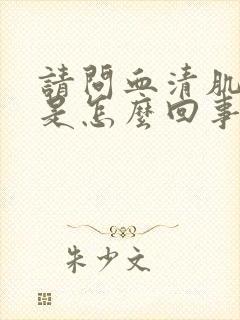 請問血清肌
是怎麼回事
朱少文